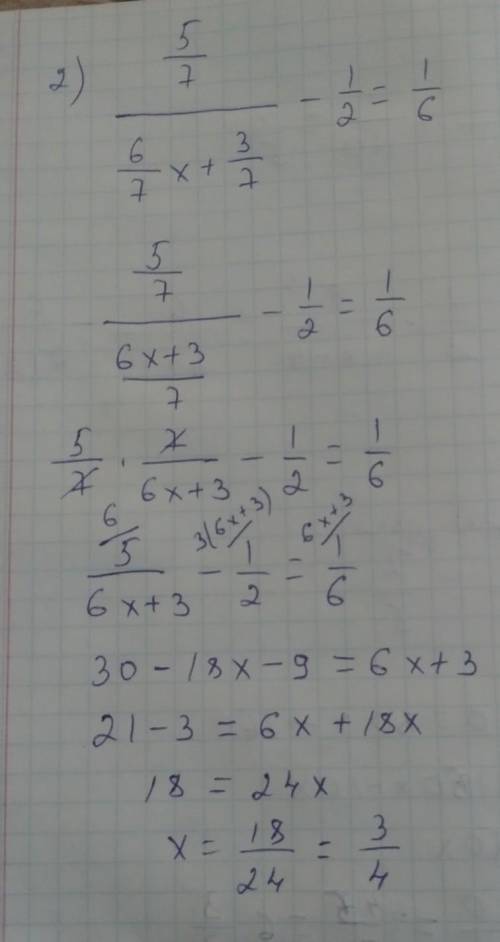 2) \frac{\frac{5}{7}}{\frac{6}{7}x + \frac{3}{7}} - \frac{1}{2} = \frac{1}{6}
\frac{\frac{5}{7}}{\frac{6x+3}{7}} - \frac{1}{2} = \frac{1}{6}
\frac{5}{7} \cdot \frac{7}{6x+3} - \frac{1}{2} = \frac{1}{6}
6/ 3(6x+3)/ 6x+3/
\frac{5}{6x+3} - \frac{1}{2} = \frac{1}{6}
30 - 18x - 9 = 6x + 3
21 - 3 = 6x + 18x
18 = 24x
x = \frac{18}{24} = \frac{3}{4}